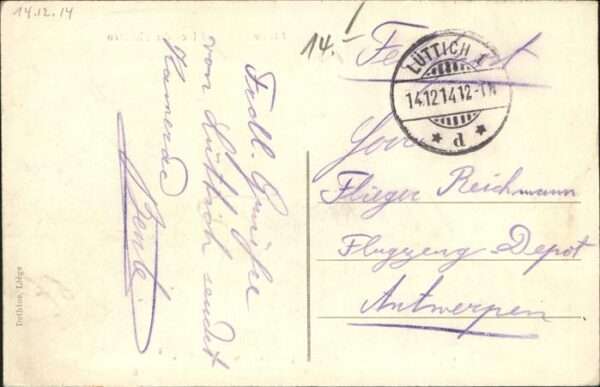 14.12.14
14.-
Feldpost
LÜTTICH 1
14.12.14.12-1N
* d *
Herrn
Flieger Reichmann
Flugzeug Depot
Antwerpen
Frdl. Grüße
von Lüttich sendet
Kamerad
Dothion, Liége